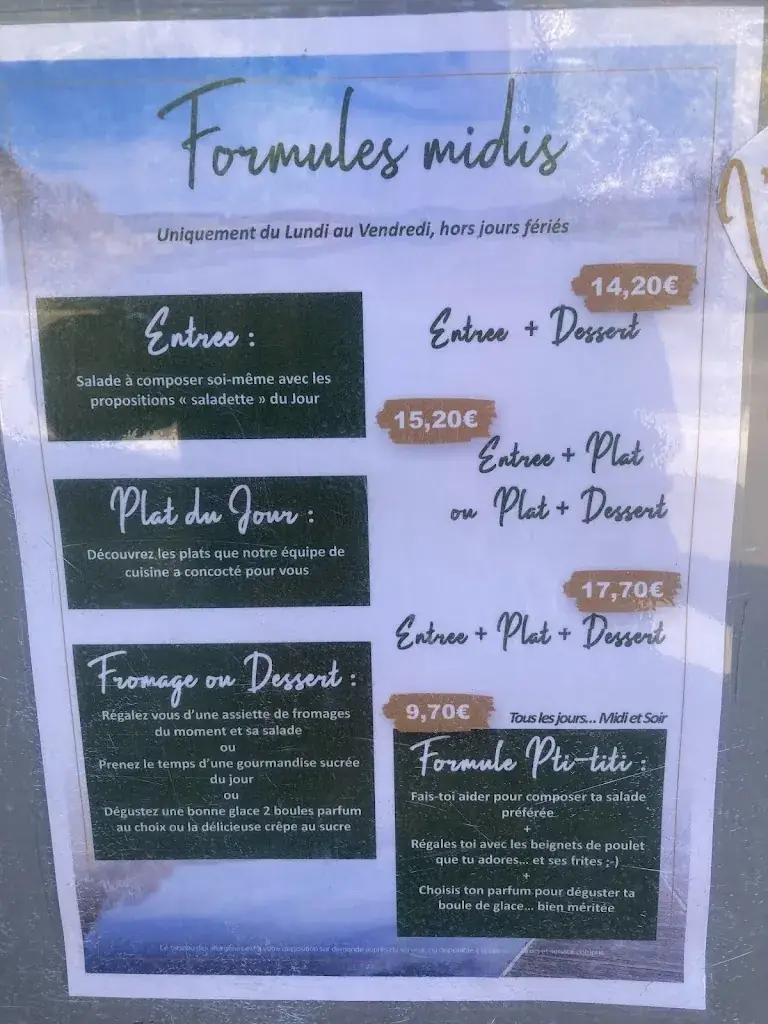 Formules midis
Uniquement du Lundi au Vendredi, hors jours fériés
Entree :
Salade à composer soi-même avec les
propositions « saladette » du Jour
14,20€
Entree + Dessert
15,20€
Entree + Plat
ou Plat + Dessert
Plat du Jour :
Découvrez les plats que notre équipe de
cuisine a concocté pour vous
17,70€
Entree + Plat + Dessert
Fromage ou Dessert :
Régalez vous d'une assiette de fromages
du moment et sa salade
ou
Prenez le temps d'une gourmandise sucrée
du jour
ou
Dégustez une bonne glace 2 boules parfum
au choix ou la délicieuse crêpe au sucre
9,70€
Tous les jours... Midi et Soir
Formule Pti-titi :
Fais-toi aider pour composer ta salade
préférée
+
Régales toi avec les beignets de poulet
que tu adores... et ses frites ;-)
+
Choisis ton parfum pour déguster ta
boule de glace... bien méritée
Le tableau des allergènes est à votre disposition sur demande auprès du serveur, ou disponible à